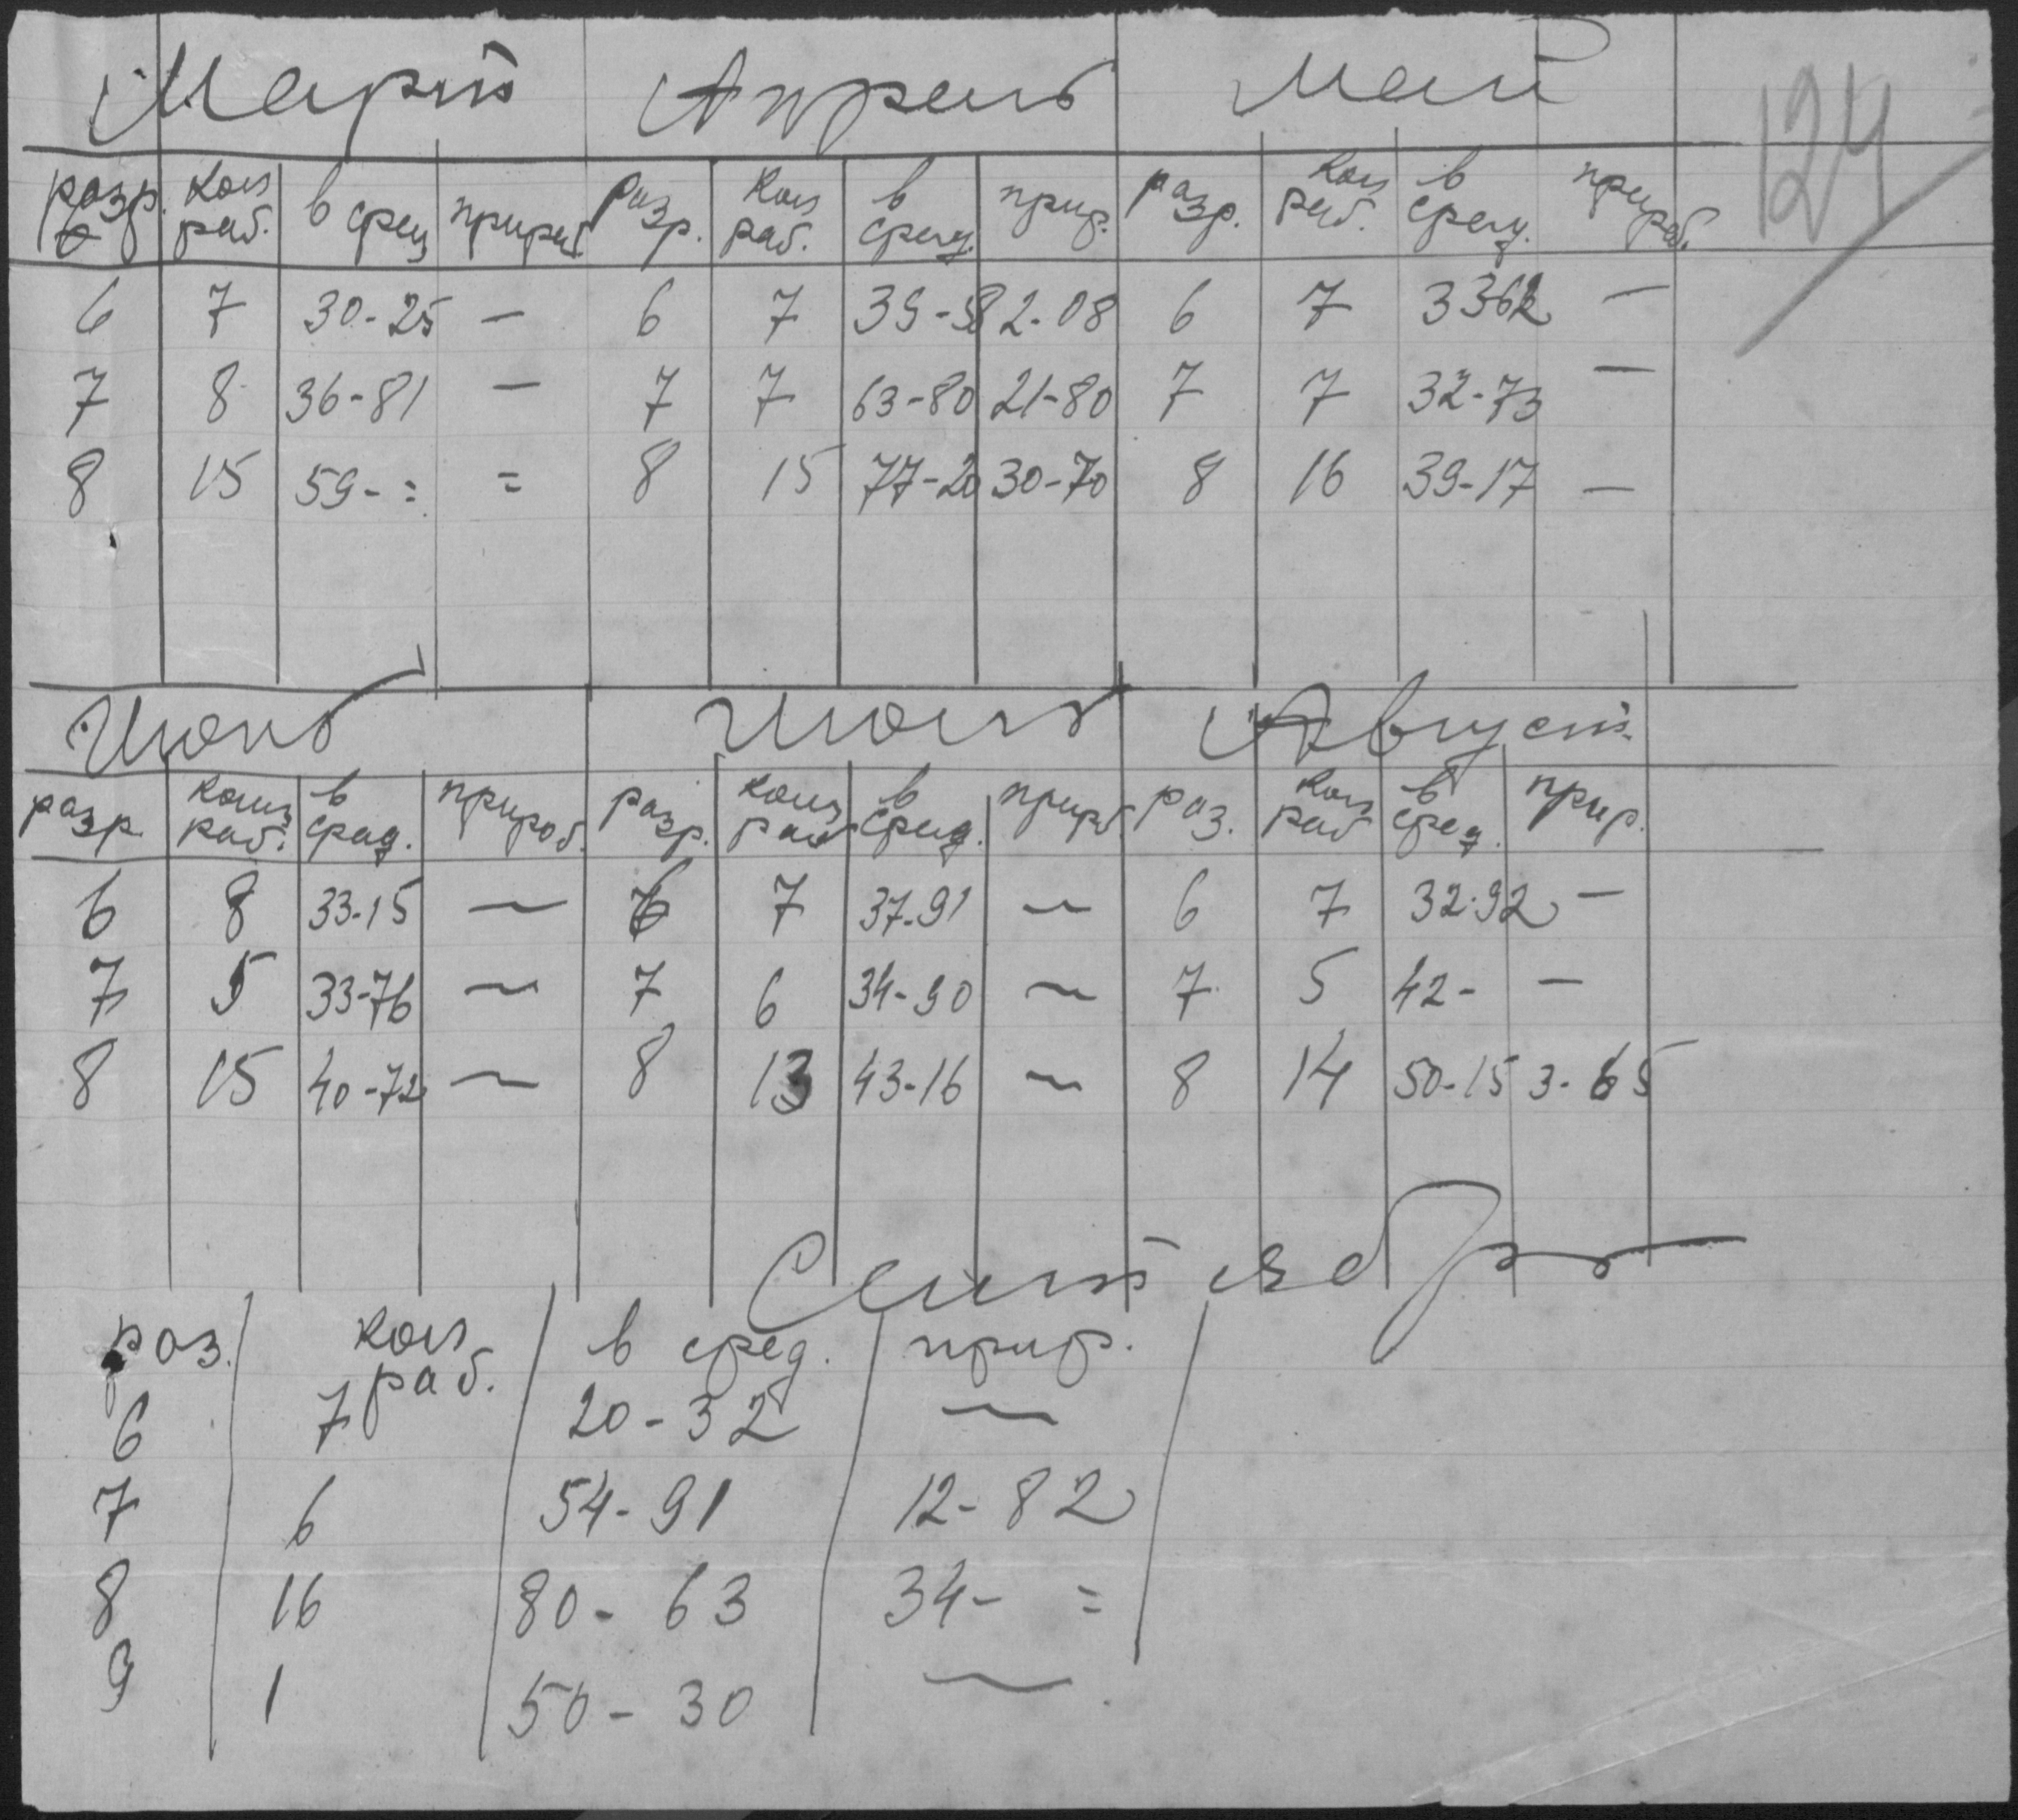 124
Март Апрель Май
разр. кол раб. в сред прираб разр. кол раб. в сред. прир. разр. кол раб. в сред. прираб.
6 7 30-25 — 6 7 39-58 2-08 6 7 33 62 —
7 8 36-81 — 7 7 63-80 21-80 7 7 32-73 —
8 15 59-= = 8 15 77-20 30-70 8 16 39-17 —
Июнь Июль Август
разр. колич раб. в сред. прираб. разр. колич раб в сред. прираб раз. кол раб в сред. прир.
6 8 33-15 — 6 7 37-91 — 6 7 32-92 —
7 5 33-76 — 7 6 34-90 — 7 5 42- —
8 15 40-72 — 8 13 43-16 — 8 14 50-15 3-65
Сентябрь
раз. кол раб. в сред. прир.
6 7 20-32 —
7 6 54-91 12-82
8 16 80-63 34-=
9 1 50-30 —